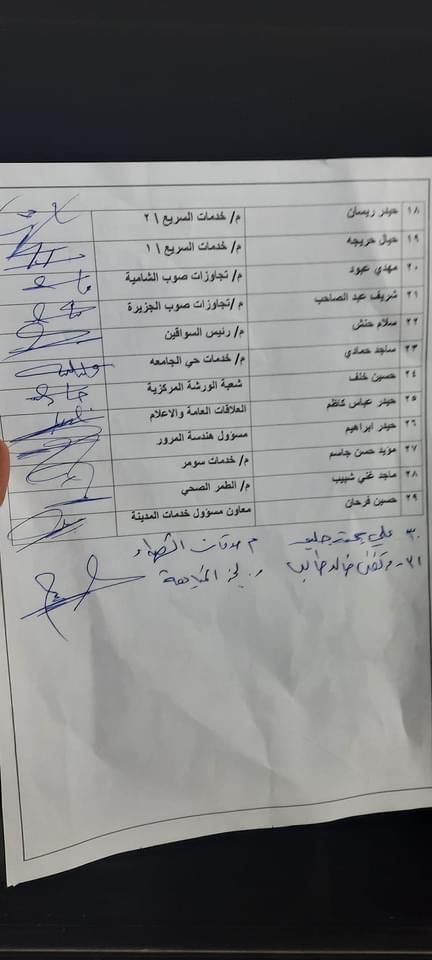 ١٨ حيدر ريسان م/ خدمات السريع ٢١
١٩ حيال حريجه م/ خدمات السريع ١١
٢٠ مهدي عبود م/ تجاوزات صوب الشامية
٢١ شريف عبد الصاحب م/ تجاوزات صوب الجزيرة
٢٢ سلام حنش م/ رئيس السواقين
٢٣ ساجد حمادي م/ خدمات حي الجامعه
٢٤ حسين خلف شعبة الورشة المركزية
٢٥ حيدر عباس كاظم العلاقات العامة والاعلام
٢٦ حيدر ابراهيم مسؤول هندسة المرور
٢٧ مؤيد حسن جاسم م/ خدمات سومر
٢٨ ماجد غني شبيب م/ الطمر الصحي
٢٩ حسين فرحان معاون مسؤول خدمات المدينة
٣٠ علي م
٣١ خالد المتابعة